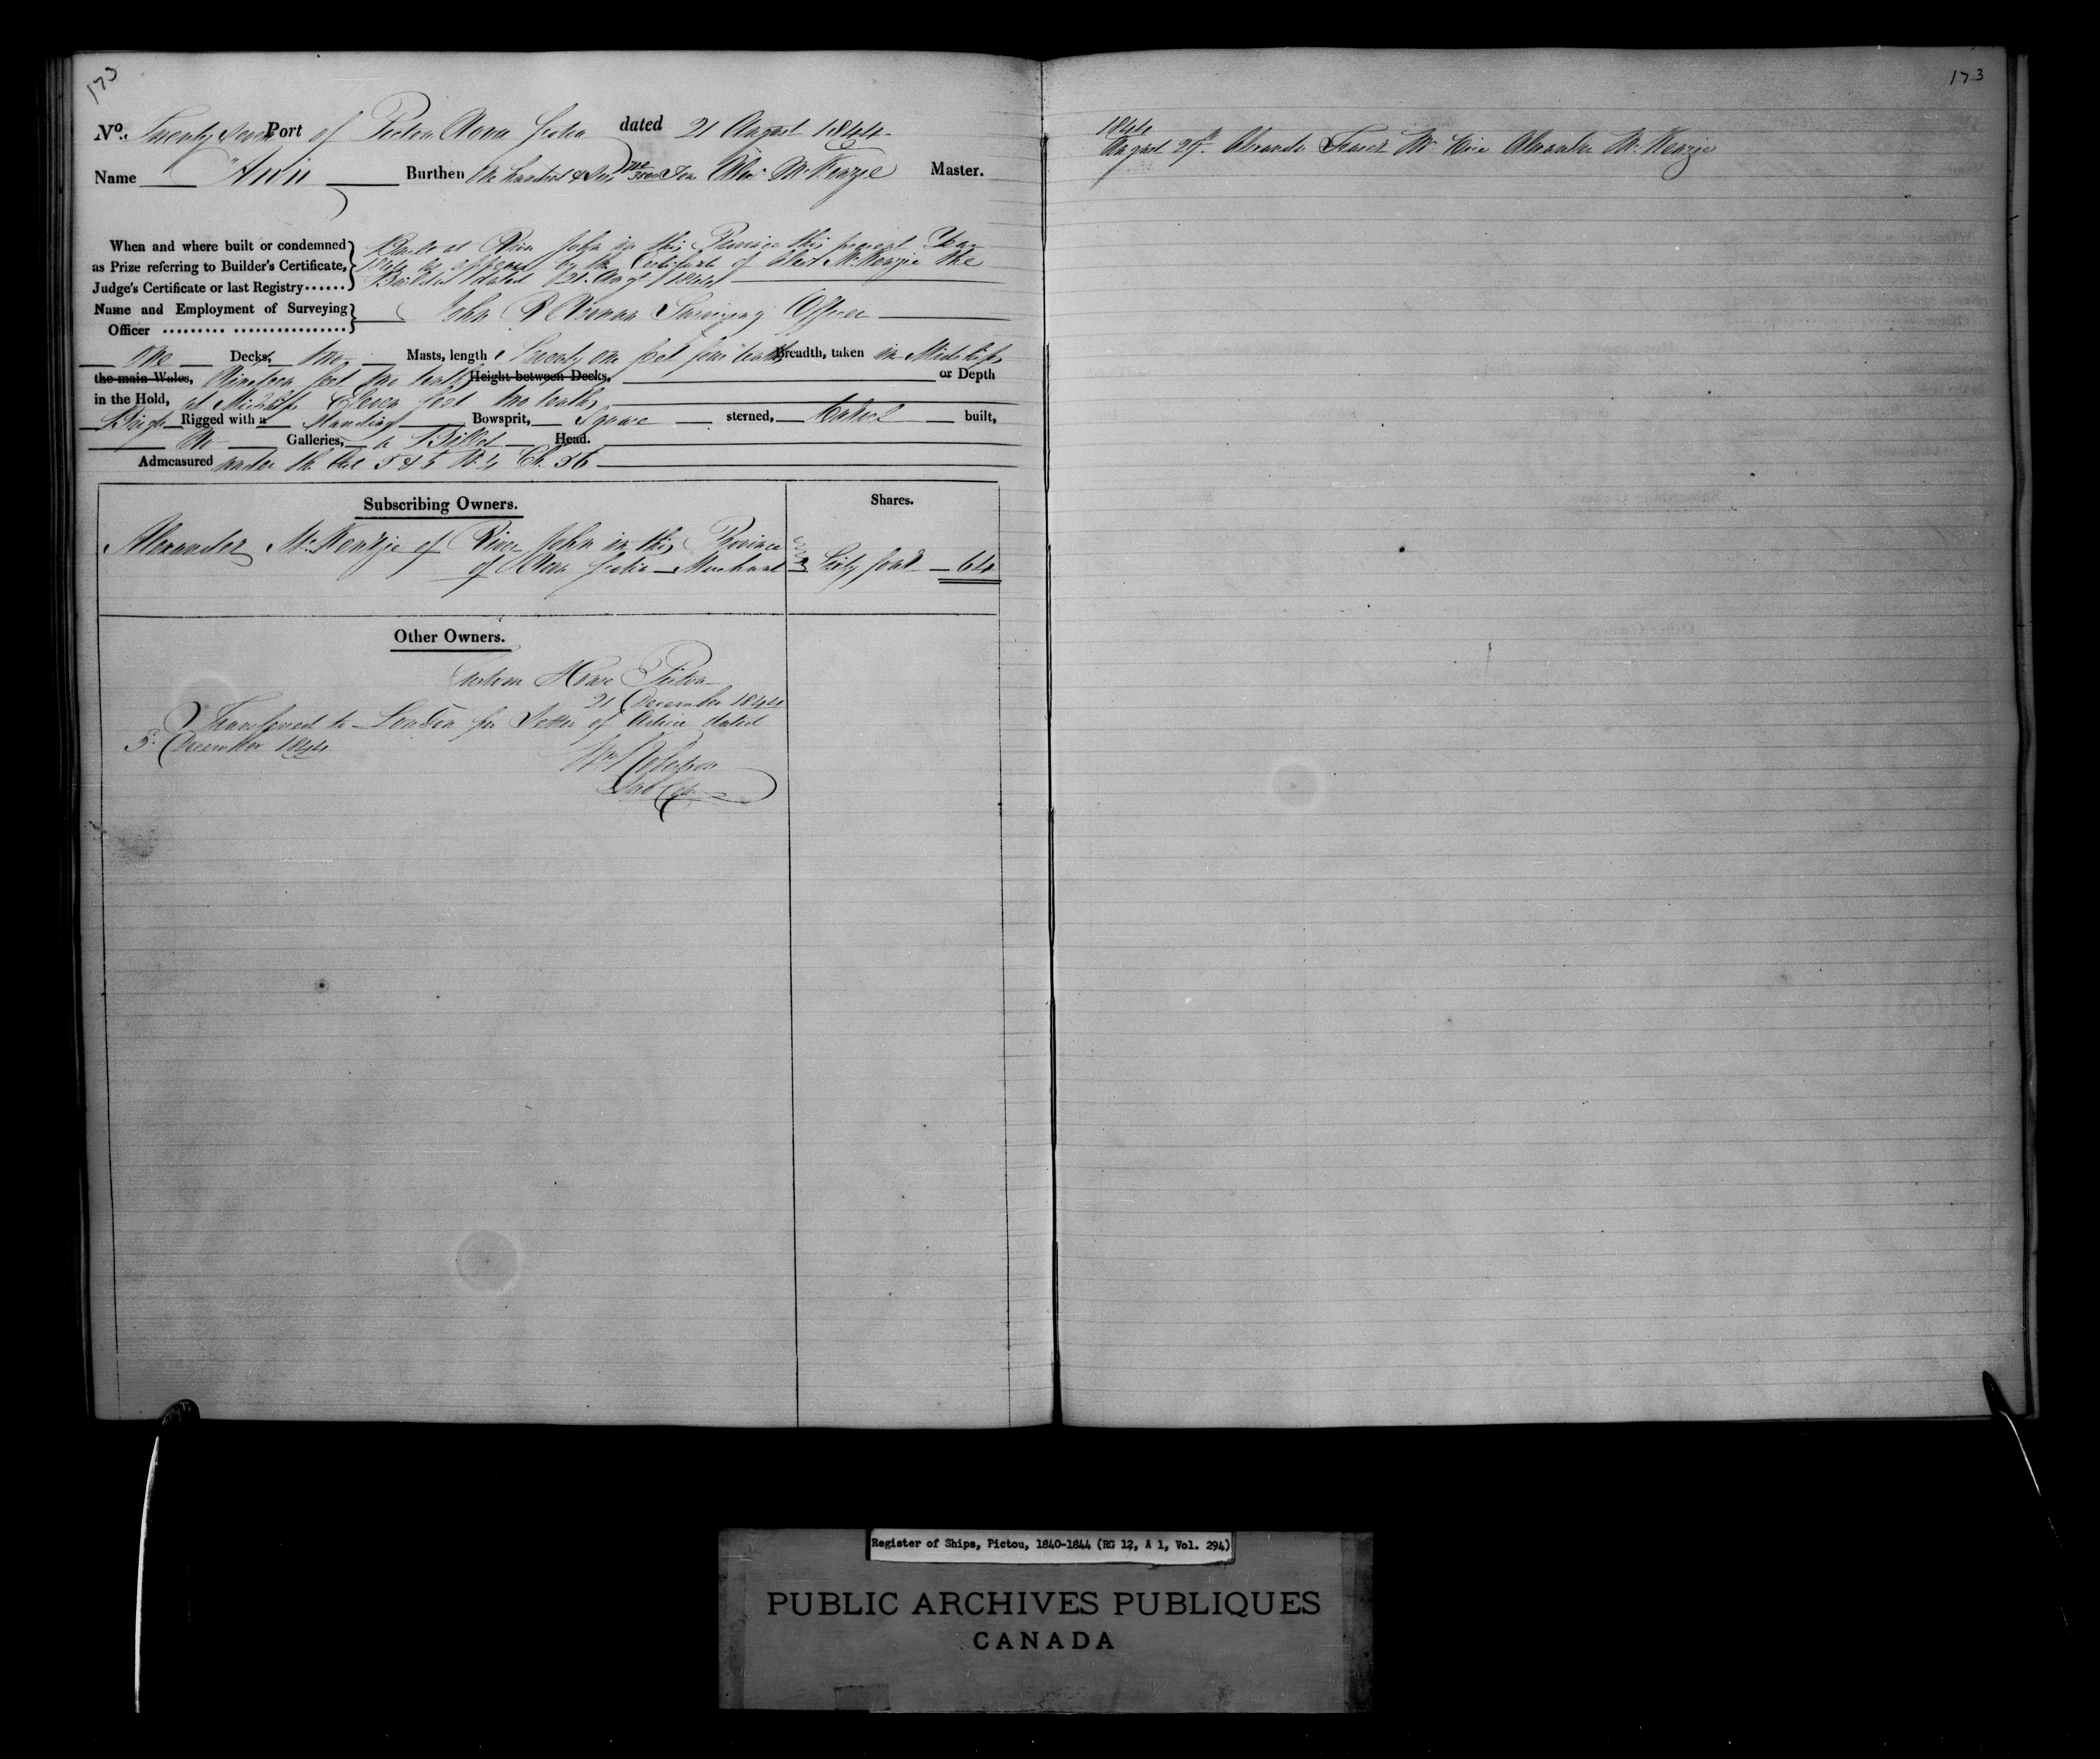 173
No. Twenty Seven Port of Pictou Nova Scotia dated 21 August 1844
Name "Ann" Burthen One hundred & Tons Alexr McKenzie Master.
When and where built or condemned
as Prize referring to Builder's Certificate,
Judge's Certificate or last Registry......
Built at River John in this Province this present Year
as appears by the Certificate of Alexr McKenzie the
Builder dated 21 Augt 1844
Name and Employment of Surveying
Officer
John R Noonan Surveying Officer
One Decks, two Masts, length Seventy one feet four tenths Breadth, taken in Midships
the main Wales, Nineteen feet two tenths Height between Decks, or Depth
in the Hold, at Midships Eleven feet two tenths
Brig Rigged with a standing Bowsprit, Square sterned, Carvel built,
No Galleries, a Billet Head.
Admeasured under the Act 5 & 6 W. 4 Ch. 56
Subscribing Owners.
Shares.
Alexander McKenzie of River John in this Province
of Nova Scotia Merchant Sixty four 64
Other Owners.
Custom House Pictou
21 December 1844
Transferred to London per Letter of Advice dated
5 December 1844
173
1844
August 29th Alexander Fraser Mr vice Alexander McKenzie
Register of Ships, Pictou, 1840-1844 (RG 12, A 1, Vol. 294)
PUBLIC ARCHIVES PUBLIQUES
CANADA